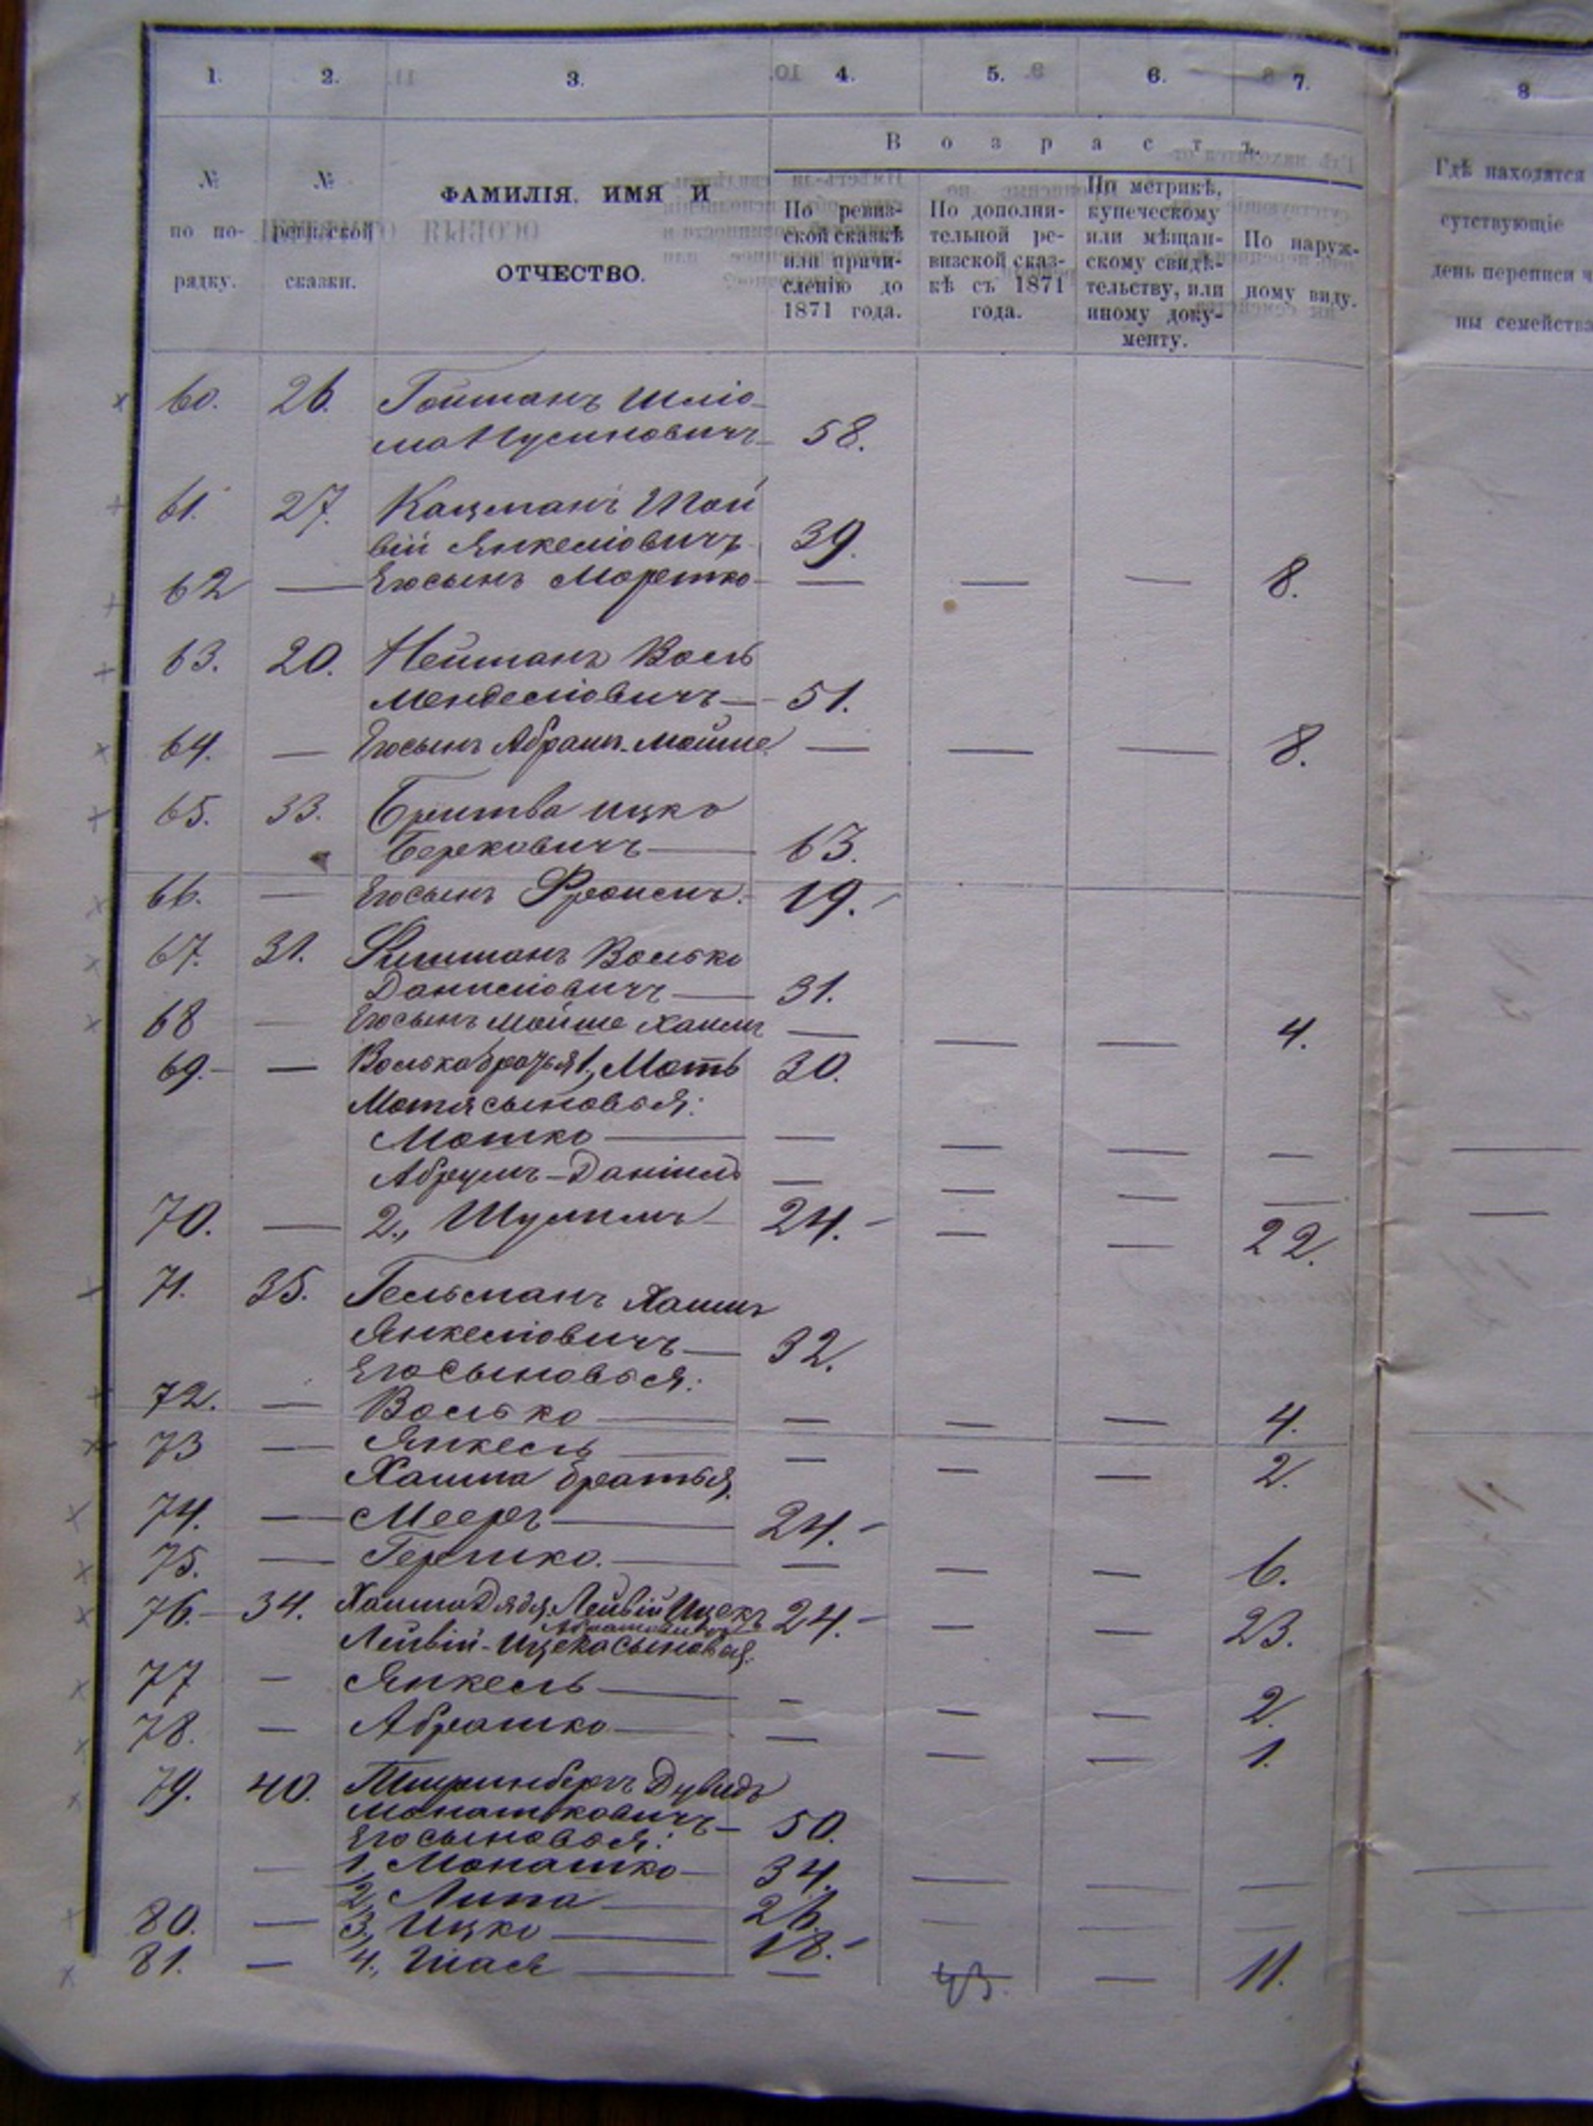 1. 2. 3. 4. 5. 6. 7. 8
№ по по- рядку.
№ ревизской сказки.
ФАМИЛІЯ, ИМЯ И
ОТЧЕСТВО.
Возрастъ.
По ревиз-
ской сказкѣ
или причи-
сленію до
1871 года.
По дополни-
тельной ре-
визской сказ-
кѣ съ 1871
года.
По метрикѣ,
купеческому
или мѣщан-
скому свидѣ-
тельству, или
иному доку-
менту.
По наруж-
ному виду.
Гдѣ находятся
сутствующіе
день переписи ч
ны семейства
60. 26. Гойтманъ Шліо-
ма Нусиновичъ 58.
61. 27. Кацманъ
Янкеліовичъ 39.
62 — Его сынъ Мошко — — — 8.
63. 20. Нейманъ Воль
Менделіовичъ — 51.
64. — Его сынъ Абрамъ-Мойше — — — 8.
65. 33. Бритва Ицко
Берковичъ — 63.
66. — Его сынъ Фроимъ. 19.
67. 31. Волько
Даниліовичъ — 31.
68 — Его сынъ Мойше Хаимъ — — — 4.
69. — Волька братья 1., Моть 30.
Мотя сыновья:
Мошко — — — — —
Абрумъ-Даніилъ — — — —
70. — 2., Шулимъ 24. — — 22.
71. 35. Гельманъ Хаимъ
Янкеліовичъ — 32.
Его сыновья:
72. — Волько — — — — 4.
73 — Янкель — — — — 2.
Хаима братья.
74. — Мееръ — 24.
75. — Гершко. — — — — 6.
76. — 34. Хаима дядя Лейвій Ицекъ 24. — — 23.
Абрамовичъ
Лейвій-Ицека сыновья.
77 — Янкель — — — — 2.
78. — Абрашко — — — — 1.
79. 40. Дувидъ
Монашковичъ — 50.
Его сыновья:
— 1., Монашко — 34. — — —
2., Липа — 26.
80. — 3., Ицко — 18. — — —
81. — 4., Шая — — 43. — 11.